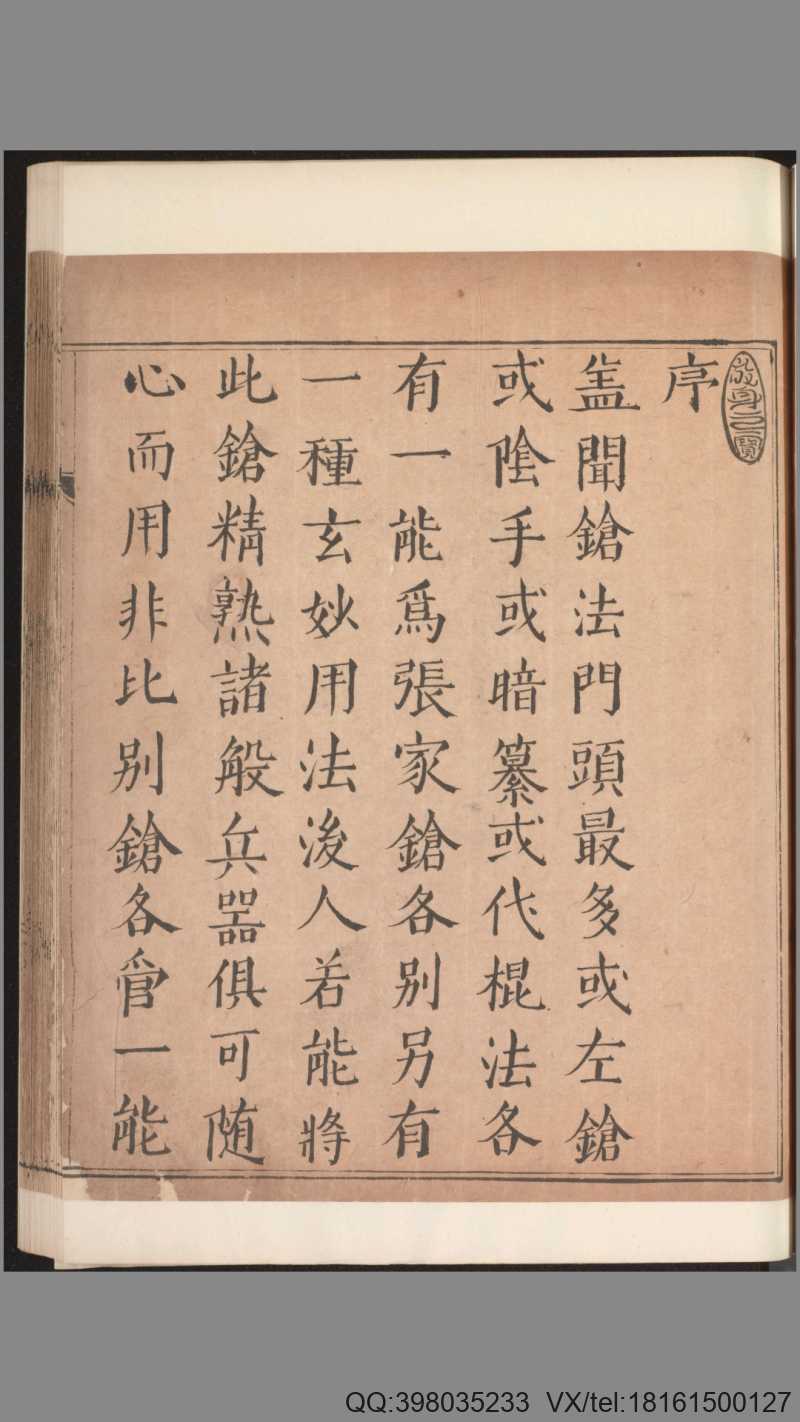 序
盖聞鎗法門頭最多或左鎗
或陰手或暗纂或代棍法各
有一能爲張家鎗各别另有
一種玄妙用法後人若能將
此鎗精熟諸般兵器俱可随
心而用非比别鎗各管一能
QQ:398035233 VX/tel:18161500127